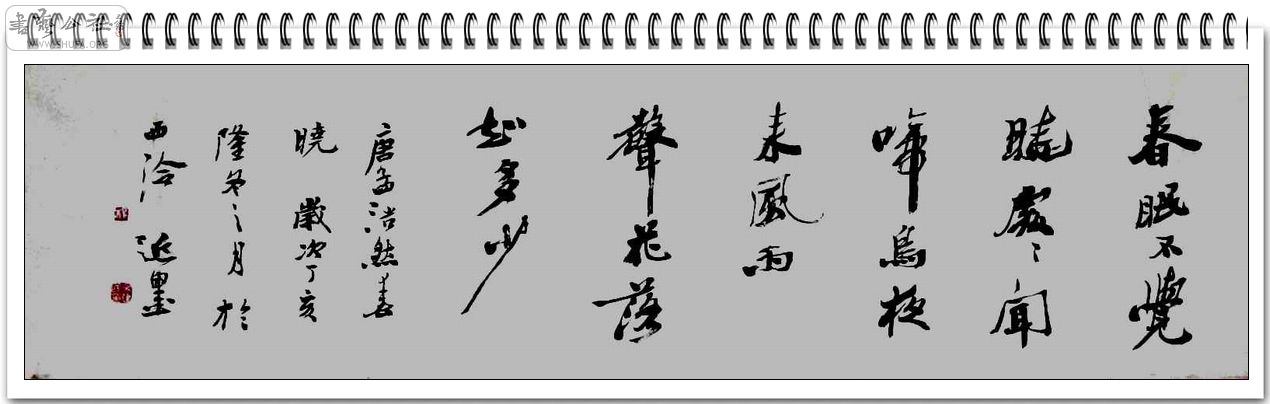 書藝公社
WWW.SHUFA.ORG
春眠不覺
曉處〻聞
啼鳥夜
来風雨
聲花落
知多少
唐孟浩然春
曉 歲次丁亥
隆冬之月於
西泠 近墨